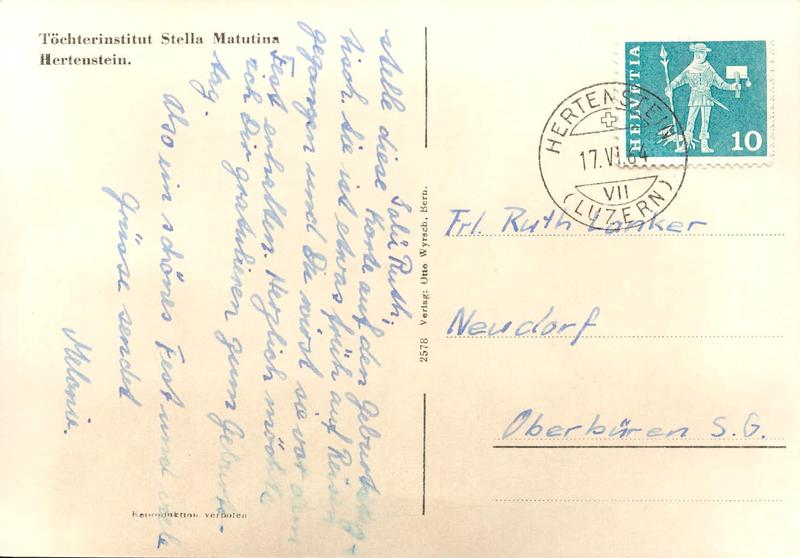 Töchterinstitut Stella Matutina
Hertenstein.
Salü Ruth,
stelle diese Karte auf den Geburtstag-
tisch. Sie ist etwas früh auf Reisen
gegangen und Du wirst sie vor dem
Fest erhalten. Herzlich möchte
ich Dir gratulieren zum Geburts-
tag.
Also ein schönes Fest und viele
Grüsse sendet
Melanie.
Reproduktion verboten
2578 Verlag: Otto Wyrsch, Bern.
HELVETIA
10
HERTENSTEIN
17.VI.64
VII
(LUZERN)
Frl. Ruth Lanker
Neudorf
Oberbüren S.G.